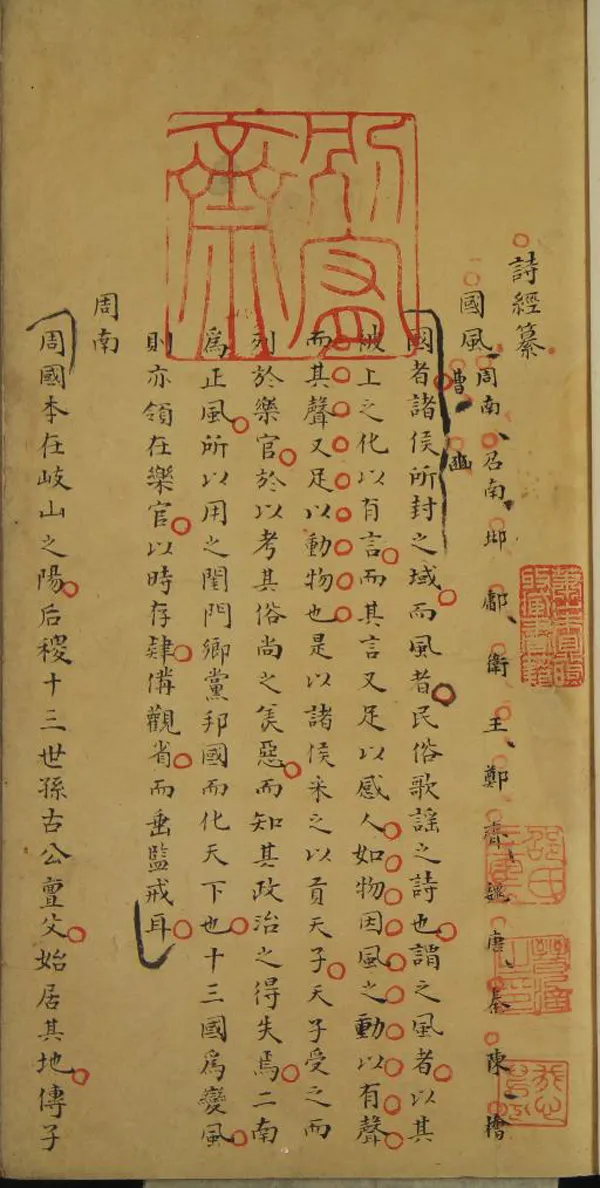 別宥齋
詩經纂
國風 周南、召南、邶 鄘、衛 王、鄭 齊、魏 唐、秦 陳 檜
曹、豳
國者諸侯所封之域而風者民俗歌謠之詩也謂之風者以其
被上之化以有言而其言又足以感人如物因風之動以有聲
而其聲又足以動物也是以諸侯采之以貢天子天子受之而
列於樂官於以考其俗尚之美惡而知其政治之得失焉二南
爲正風所以用之閨門鄉黨邦國而化天下也十三國爲變風
則亦領在樂官以時存肄備觀省而垂監戒耳
周南
周國本在岐山之陽后稷十三世孫古公亶父始居其地傳子